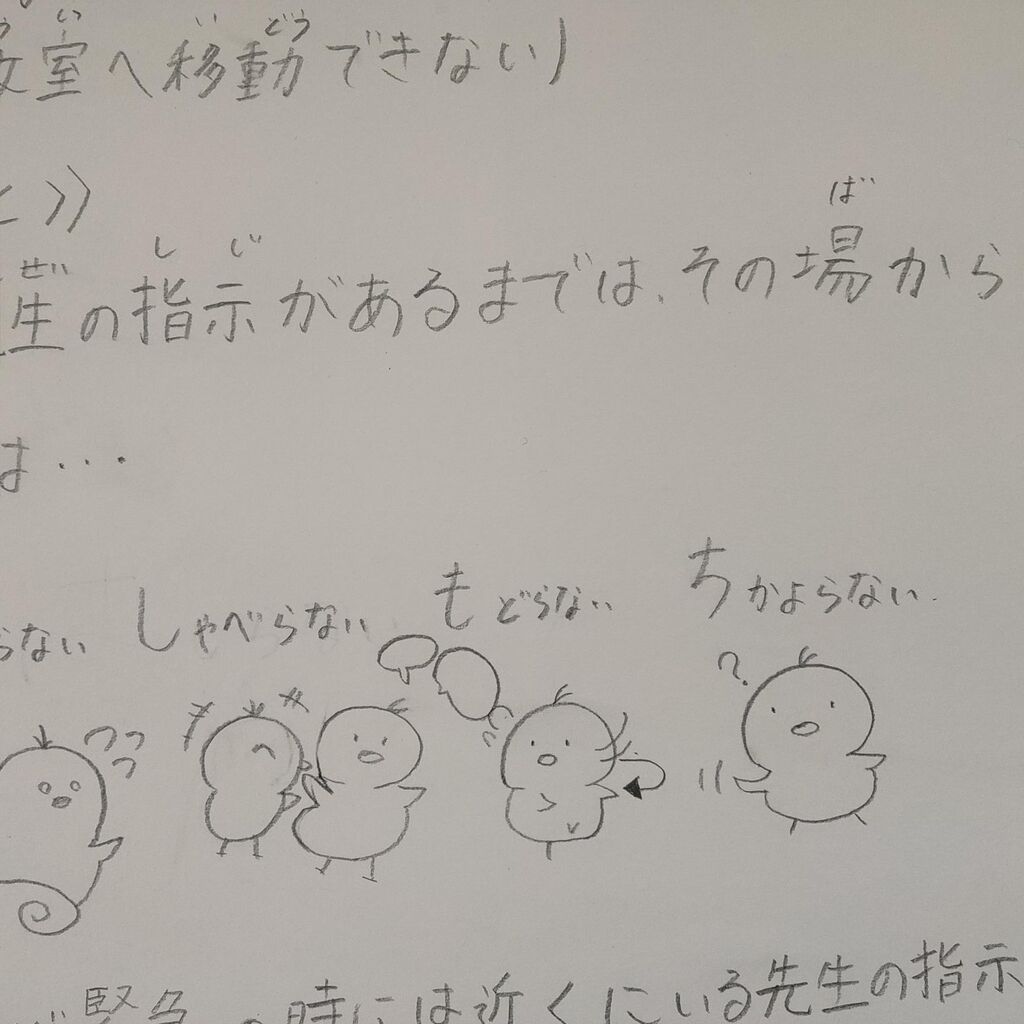 室へ移動できない)
い どう
と》
せい しじ ば
生の指示があるまでは、その場から
は…
らない しゃべらない もどらない ちかよらない
?
緊急の時には近くにいる先生の指示